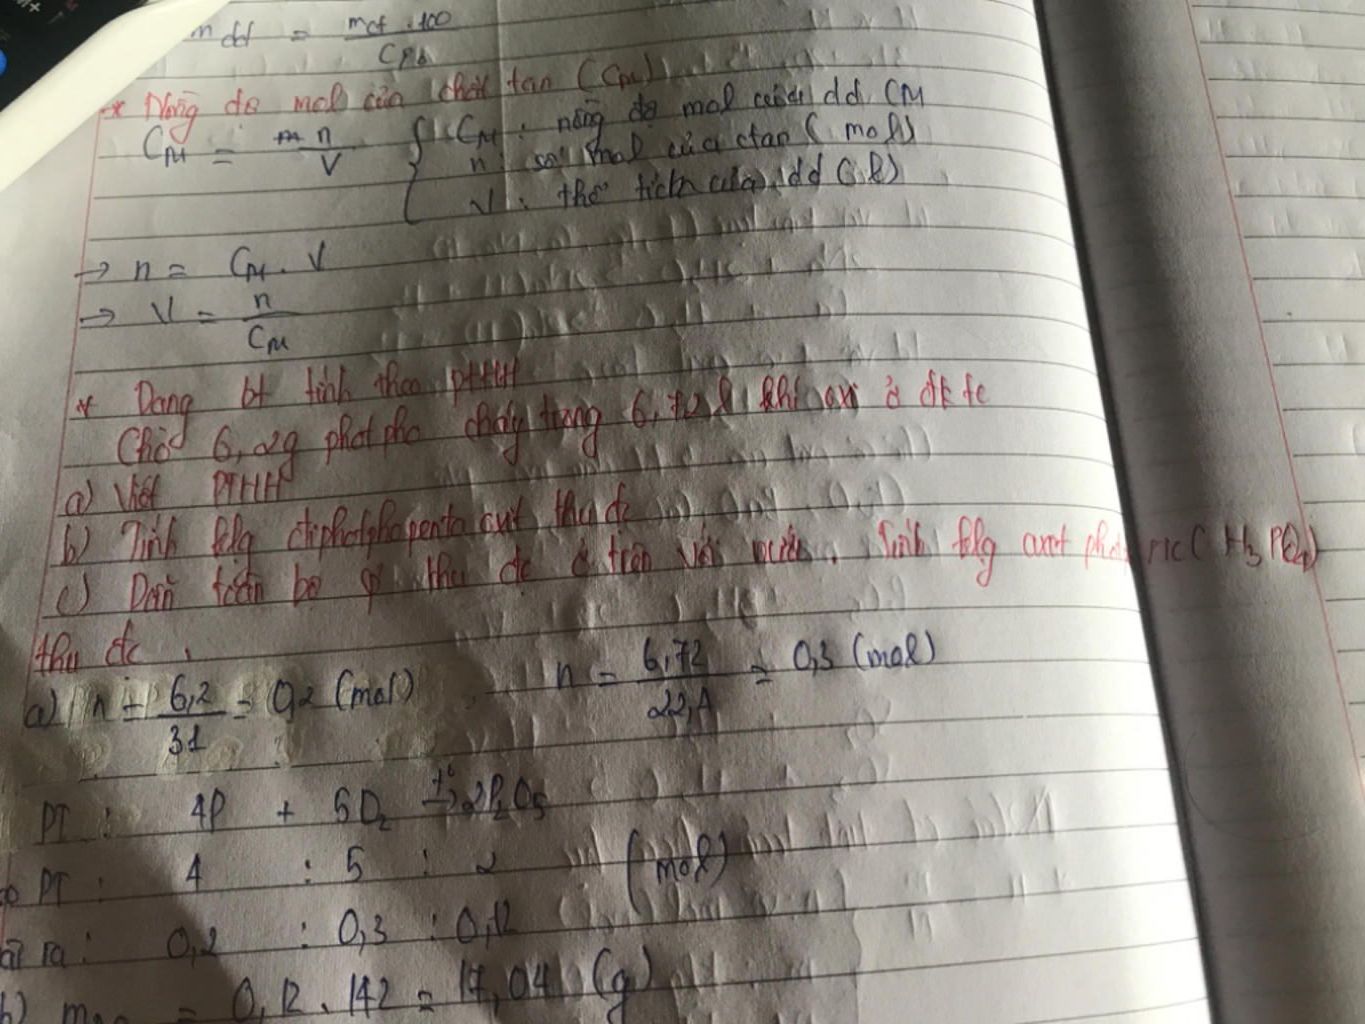 m dd = mct . 100 / C%
* Nồng độ mol của chất tan (CM)
CM = n / V { CM : nồng độ mol của dd CM
n : số mol của ctan ( mol)
V : thể tích của dd ( l)
→ n = CM . V
→ V = n / CM
* Dạng bt tính theo PTHH
Chờ 6,2g photpho cháy trong 6,72 l khí oxi ở đktc
a) Viết PTHH
b) Tính klg điphotphopenta oxit thu đc
c) Dẫn toàn bộ thu đc ở trên với nước. Tính klg axit phophoric ( H3 PO4)
thu đc .
a) n = 6,2 / 31 = 0,2 (mol) n = 6,72 / 22,4 = 0,3 (mol)
PT : 4P + 5O2 t° → 2P2O5
o PT : 4 : 5 : 2 (mol)
ài ra : 0,2 : 0,3 : 0,12
b) m = 0,12 . 142 = 17,04 (g)